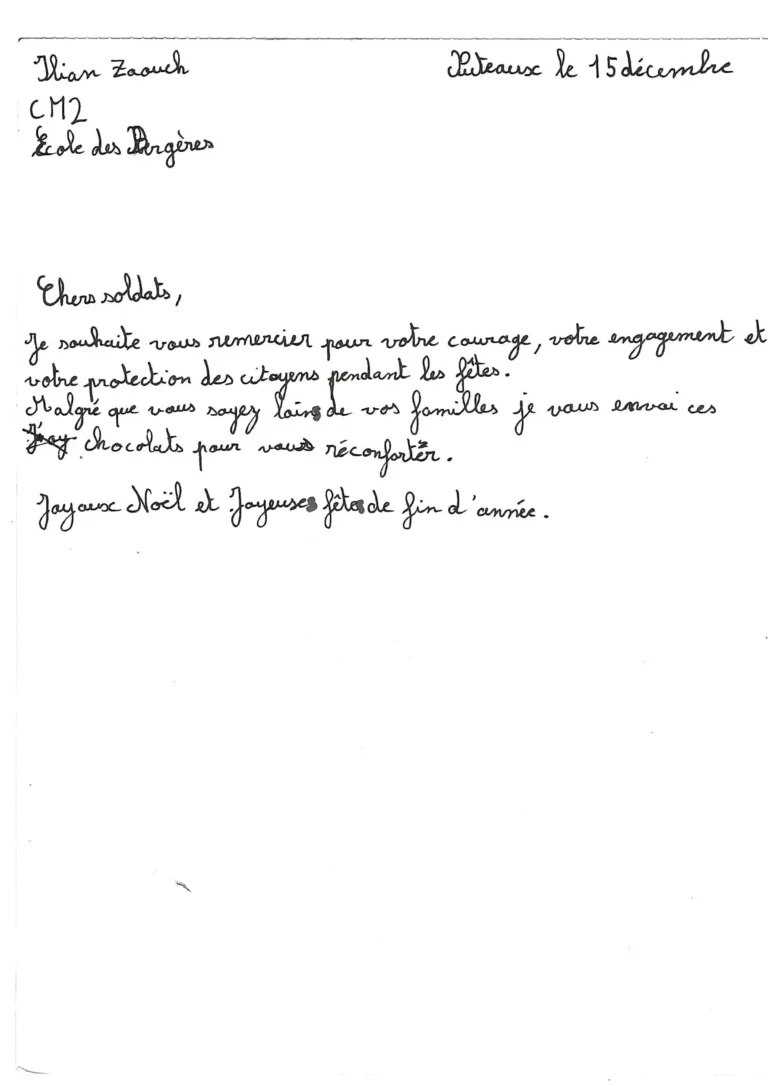 Ilian Zaouch
Puteaux le 15 décembre
CM2
École des Bergères
Chers soldats,
Je souhaite vous remercier pour votre courage, votre engagement et
votre protection des citoyens pendant les fêtes.
Malgré que vous soyez loins de vos familles je vous envoi ces
chocolats pour vous réconforter.
Joyaux Noël et Joyeuses fêtes de fin d'année.